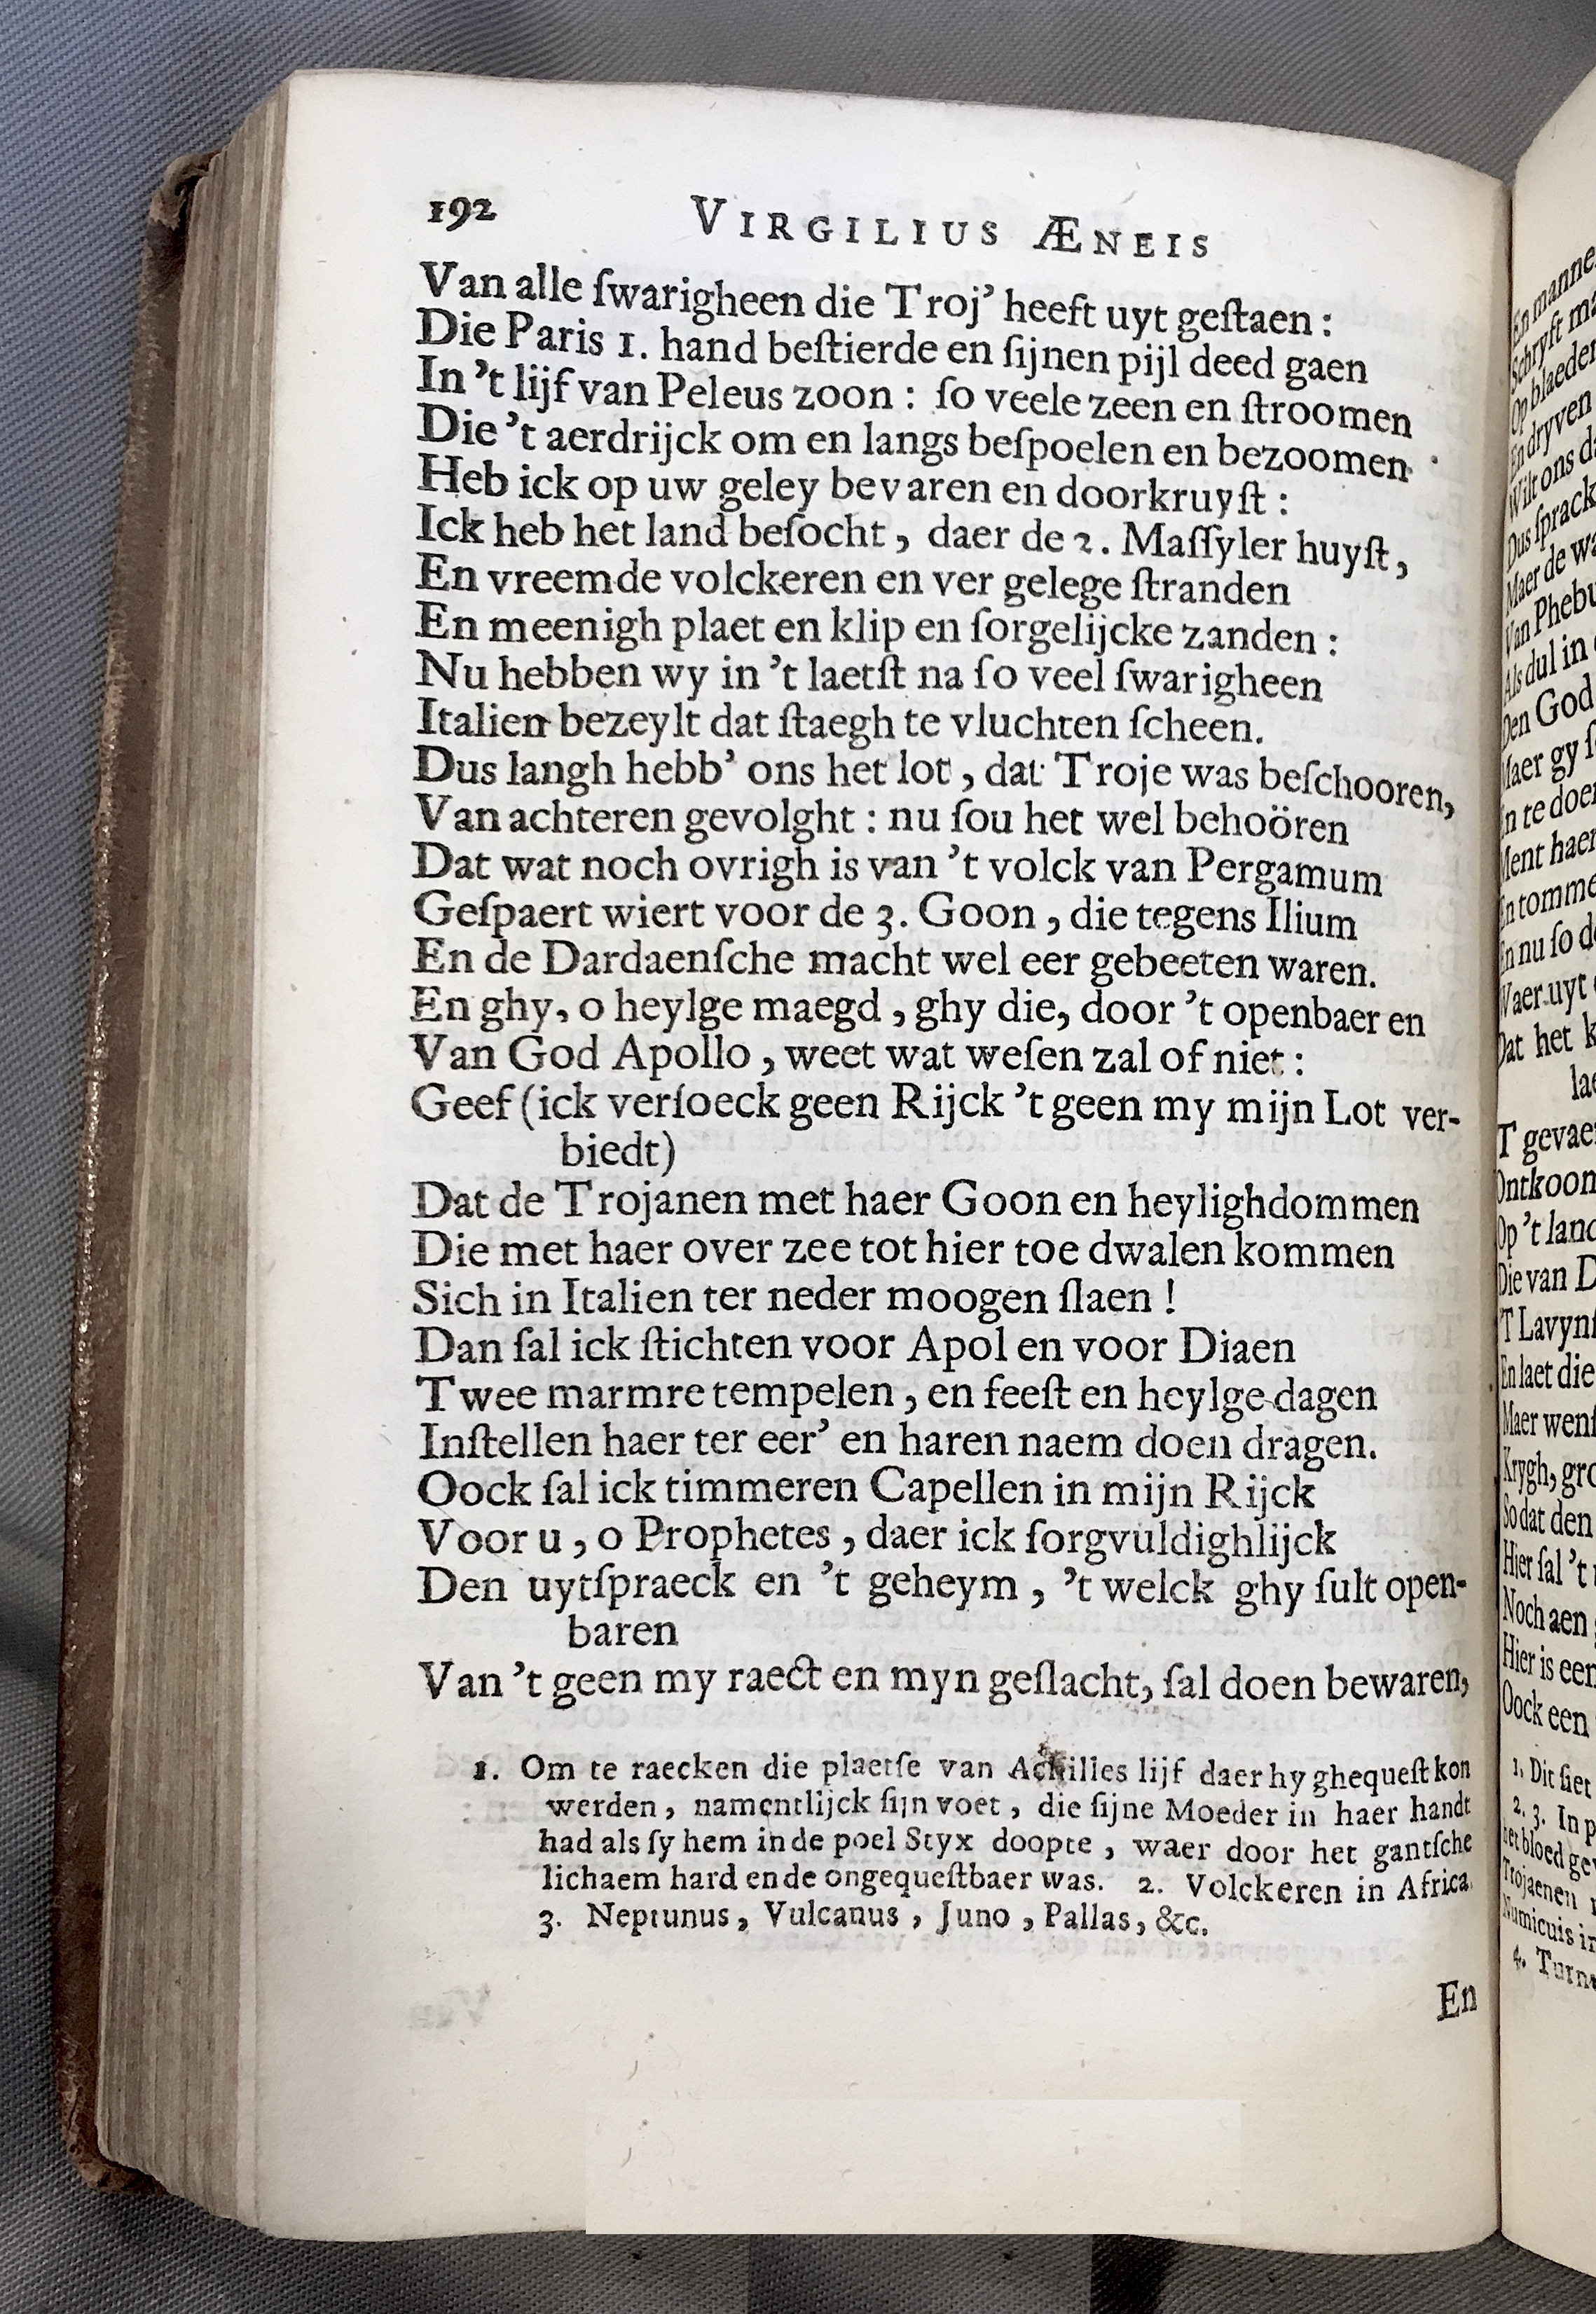 192 VIRGILIUS ÆNEIS
Van alle ſwarigheen die Troj’ heeft uyt geſtaen :
Die Paris 1. hand beſtierde en ſijnen pijl deed gaen
In ’t lijf van Peleus zoon : ſo veele zeen en ſtroomen
Die ’t aerdrijck om en langs beſpoelen en bezoomen
Heb ick op uw geley bevaren en doorkruyſt :
Ick heb het land beſocht , daer de 2. Maſſyler huyſt ,
En vreemde volckeren en ver gelege ſtranden
En meenigh plaet en klip en ſorgelijcke zanden :
Nu hebben wy in ’t laetſt na ſo veel ſwarigheen
Italien bezeylt dat ſtaegh te vluchten ſcheen.
Dus langh hebb’ ons het lot , dat Troje was beſchooren,
Van achteren gevolght : nu ſou het wel behoören
Dat wat noch ovrigh is van ’t volck van Pergamum
Geſpaert wiert voor de 3. Goon , die tegens Ilium
En de Dardaenſche macht wel eer gebeeten waren.
En ghy, o heylge maegd , ghy die, door ’t openbaer en
Van God Apollo , weet wat weſen zal of niet :
Geef (ick verſoeck geen Rijck ’t geen my mijn Lot ver-
biedt)
Dat de Trojanen met haer Goon en heylighdommen
Die met haer over zee tot hier toe dwalen kommen
Sich in Italien ter neder moogen ſlaen !
Dan ſal ick ſtichten voor Apol en voor Diaen
Twee marmre tempelen , en feeſt en heylge dagen
Inſtellen haer ter eer’ en haren naem doen dragen.
Oock ſal ick timmeren Capellen in mijn Rijck
Voor u , o Prophetes , daer ick ſorgvuldighlijck
Den uytſpraeck en ’t geheym , ’t welck ghy ſult open-
baren
Van ’t geen my raect en myn geſlacht, ſal doen bewaren,
1. Om te raecken die plaetſe van Achilles lijf daer hy ghequeſt kon
werden , namentlijck ſijn voet , die ſijne Moeder in haer handt
had als ſy hem in de poel Styx doopte , waer door het gantſche
lichaem hard ende ongequeſtbaer was. 2. Volckeren in Africa
3. Neptunus , Vulcanus , Juno , Pallas, &c.
En
En manne
Schryft ma
Op blaeder
En dryven
Wilt ons d
Dus ſprack
Maer de wa
Van Phebu
Als dul in
Den God
Maer gy ſ
En te doen
Ment haer
En tomme
En nu ſo d
Waer uyt
Dat het k
lae
T gevaer
Ontkoon
Op ’t land
Die van D
'T Lavynſ
En laet die
Maer wenſ
Krygh, gro
So dat den
Hier ſal ’t
Noch aen
Hier is een
Oock een
1. Dit ſiet
2. 3. In p
het bloed gev
Trojaenen
Numicuis in
4. Turn